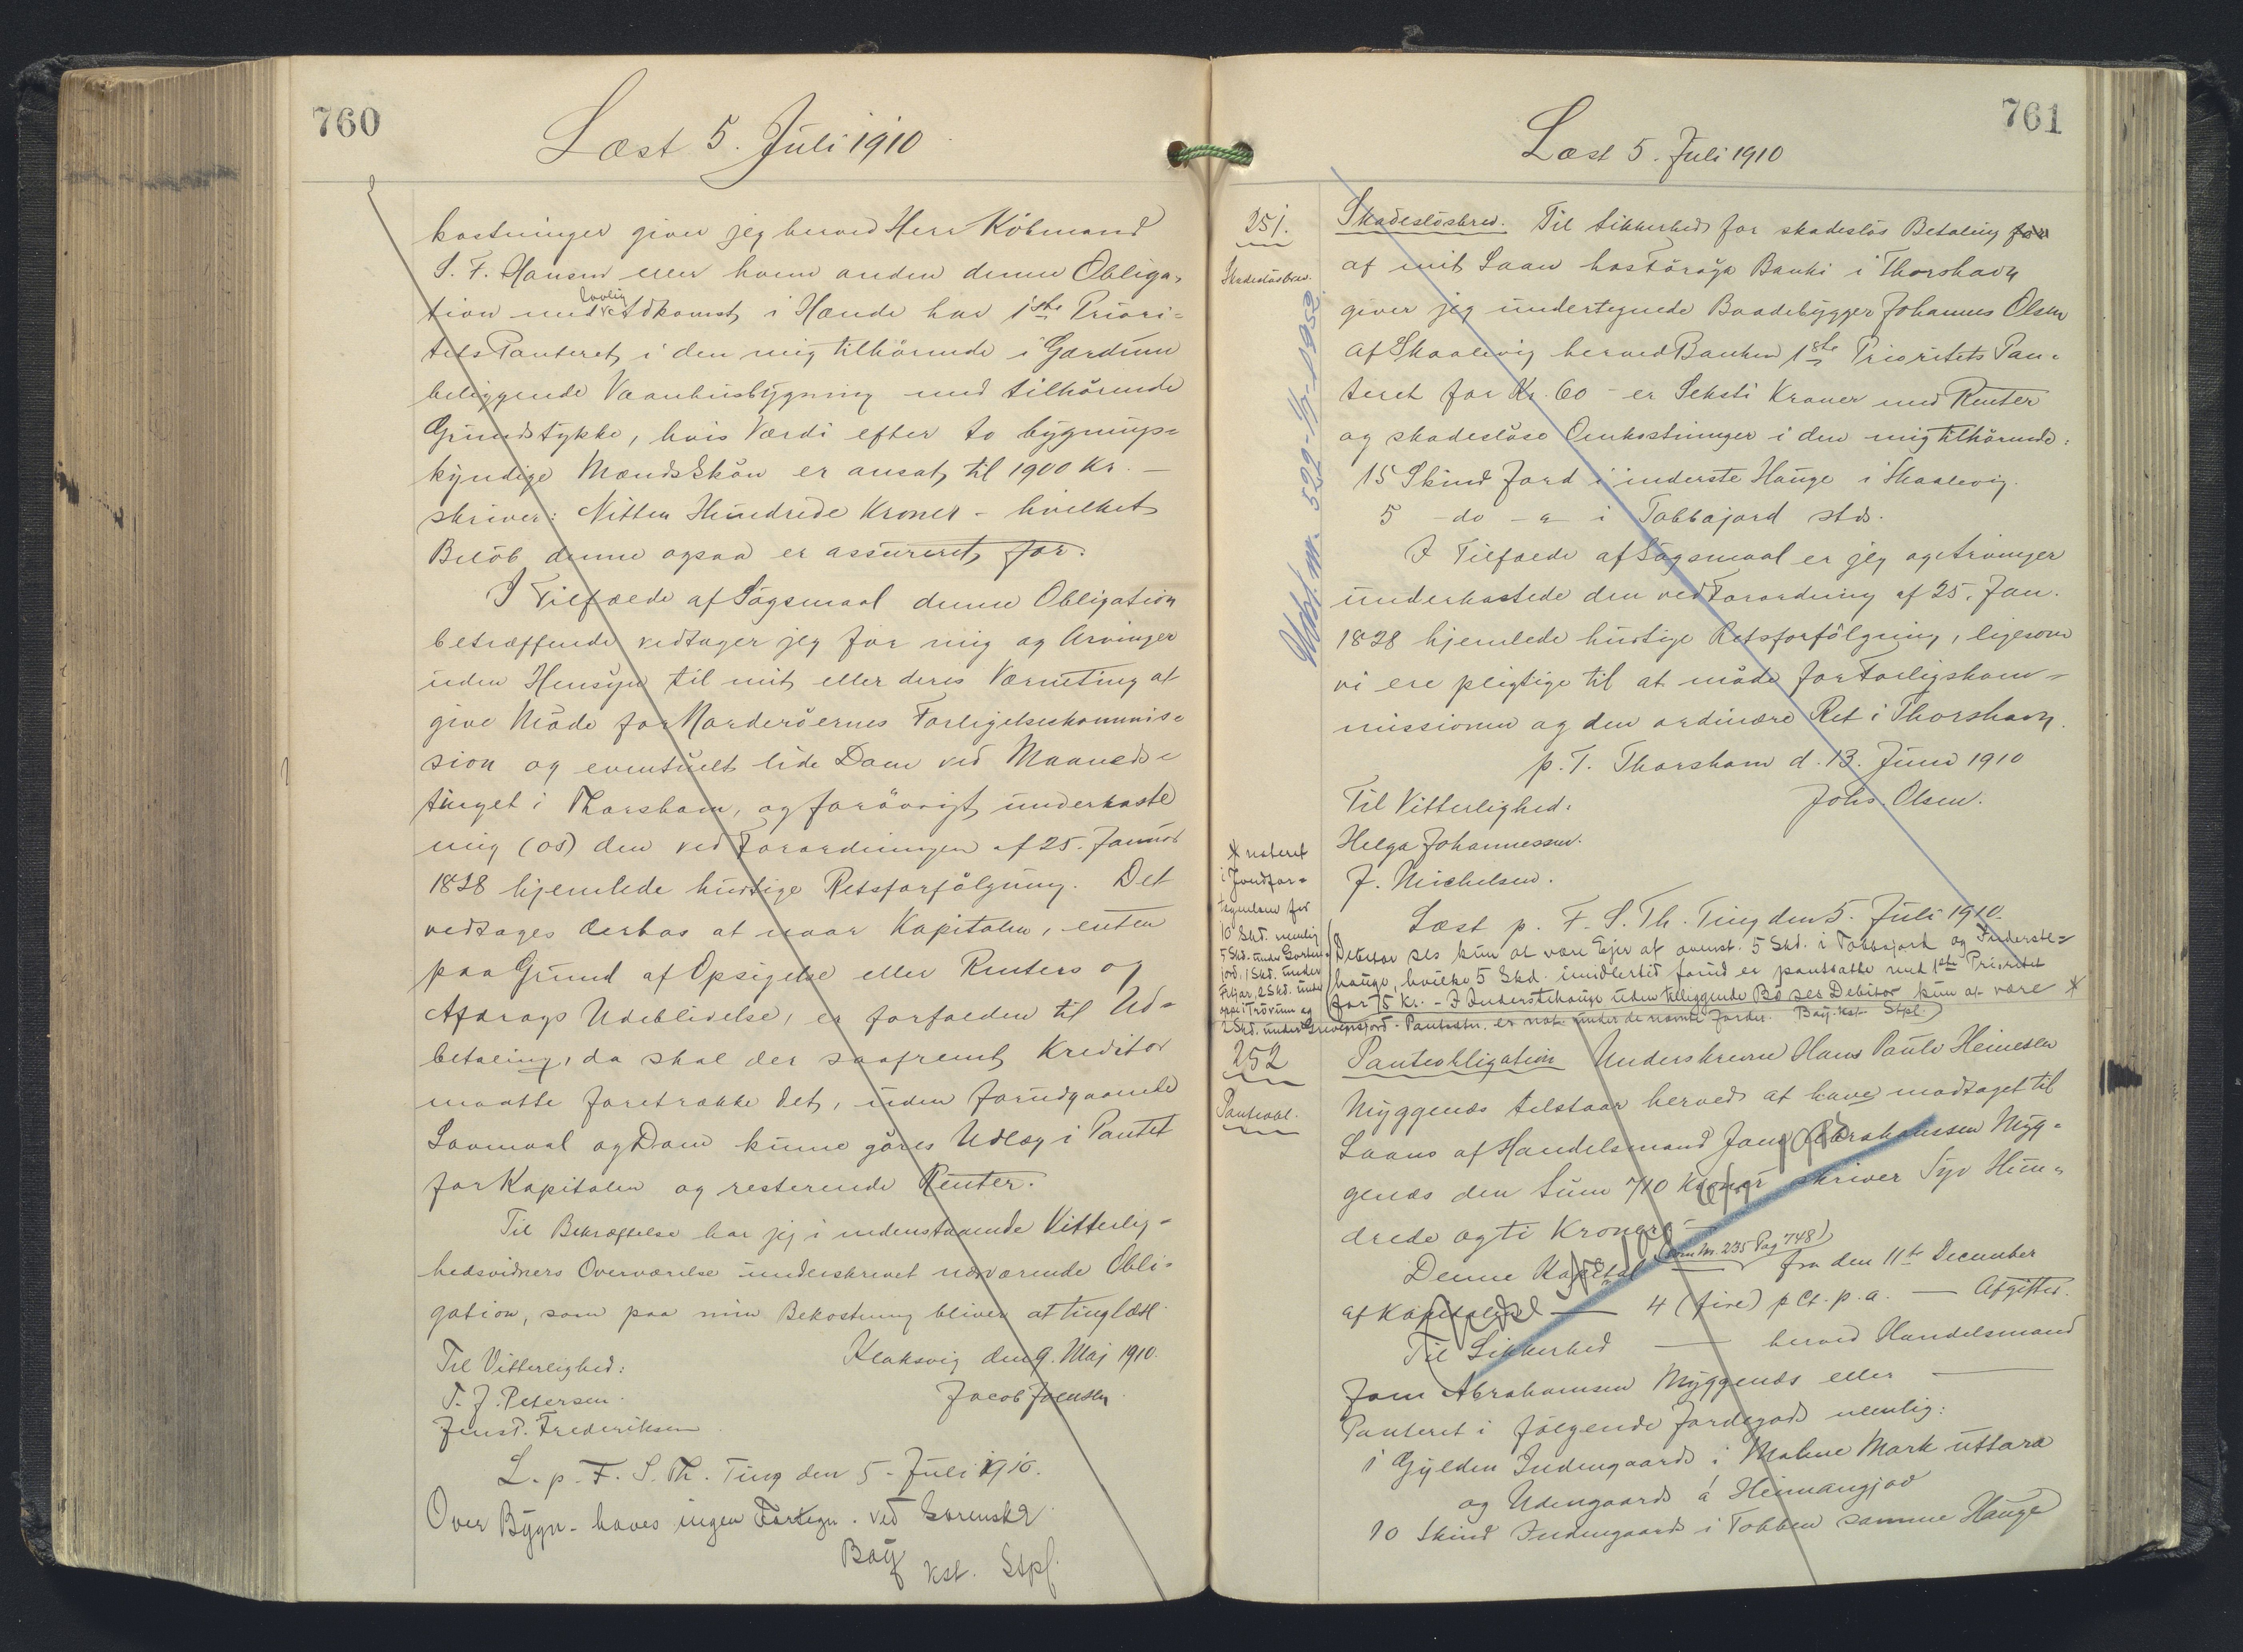 760
Læst 5. Juli 1910
kostninger giver jeg herved Herr Köbmand
S. F. Hansen eller hvem anden denne Obliga-
tion med lovlig Adkomst i Hænde har 1ste Priori-
tets Panteret i den mig tilhörende i Gærdum
beliggende Vaanhusbygning med tilhörende
Grundstykke, hvis Værdi efter to bygnings-
kyndige Mænds Skön er ansat til 1900 Kr. —
skriver: Nitten Hundrede Kroner - hvilket
Belöb denne ogsaa er assureret for.
I Tilfælde af Sögsmaal denne Obligation
betræffende vedtager jeg for mig og Arvinger
uden Hensyn til mit eller deres Værneting at
give Möde for Norderöernes Forligelseskommis-
sion og eventuelt lide Dom ved Maaneds-
tinget i Thorshavn, og forövrigt underkaste
mig (os) den ved Forordningen af 25. Januar
1828 hjemlede hurtige Retsforfölgning. Det
vedtages derhos at naar Kapitalen, enten
paa Grund af Opsigelse eller Renters og
Afdrags Udeblivelse, er forfalden til Ud-
betaling, da skal der saafremt Kreditor
maatte foretrække det, uden forudgaaende
Lovmaal og Dom kunne göres Udlæg i Pantet
for Kapitalen og resterende Renter.
Til Bekræftelse har jeg i nedenstaaende Vitterlig-
hedsvidners Overværelse underskrevet nærværende Obli-
gation, som paa min Bekostning bliver at tinglæse.
Klaksvig den 9. Maj 1910.
Til Vitterlighed:
Jacob Joensen
T. J. Petersen.
Jens P. Frederiksen
L. p. F. S. Th. Ting den 5. Juli 1910.
Over Bygn. haves ingen Fortegn. ved Sorenskr.
Bay
kst. Stpf.
761
Læst 5. Juli 1910
251.
Skadeslösbrev.
Skadeslösbrev. Til Sikkerhed for skadeslös Betaling for
af mit Laan hos Föroya Banki i Thorshavn
giver jeg undertegnede Baadebygger Johannes Olsen
af Skaalevig herved Banken 1ste Prioritets Pan-
teret for Kr. 60 - er Seksti Kroner med Renter
og skadeslöse Omkostninger i den mig tilhörende:
15 Skind Jord i inderste Hauge i Skaalevig.
5 - do - a - i Tobbajord stds.
I Tilfælde af Sögsmaal er jeg og Arvinger
underkastede den ved Forordning af 25. Jan.
1828 hjemlede hurtige Retsforfölgning, ligesom
vi ere pligtige til at möde for Forligskom-
missionen og den ordinære Ret i Thorshavn.
p. T. Thorshavn d. 13. Juni 1910
Til Vitterlighed:
Johs. Olsen.
Helga Johannessen.
J. Michelsen.
Udsl. nr. 522-1/7-1953.
Læst p. F. S. Th. Ting den 5. Juli 1910.
Debitor ses kun at være Ejer af ovenst. 5 Skd. i Tobbajord og Inderste-
hauge, hvilke 5 Skd. imidlertid forud er pantsatte med 1ste Prioritet
for 75 Kr. - I Inderstehauge uden tilliggende Bö ses Debitor kun at være *
* noteret
i Jordfor-
tegnelsen for
10 Skd. nemlig
5 Skd. under
jord, 1 Skd. under
2 Skd. under
oppi Trövum og
2 Skd. under Grevensjord. Panteretn. er not. under de nævnte Jorder. Bay. kst. Stpf.
252
Panteobl.
Panteobligation Underskrevne Hans Pauli Heinesen
Myggenæs tilstaar herved at have modtaget til
Laans af Handelsmand Joen Abrahamsen Myg-
genæs den Sum 710 Kroner skriver Syv Hun-
drede og ti Kroner —
Denne Kapital (som Nr. 235 Pag 748) fra den 11te December
af Kapitalen — 4 (fire) p Ct. p. a. — Afgifter.
Til Sikkerhed — herved Handelsmand
Joen Abrahamsen Myggenæs eller —
Panteret i fölgende Jordegods nemlig:
1 Gylden Indengaards i Malene Mark uttara
og Udengaards á Heimangjov
10 Skind Indengaards i Tobben samme Hauge